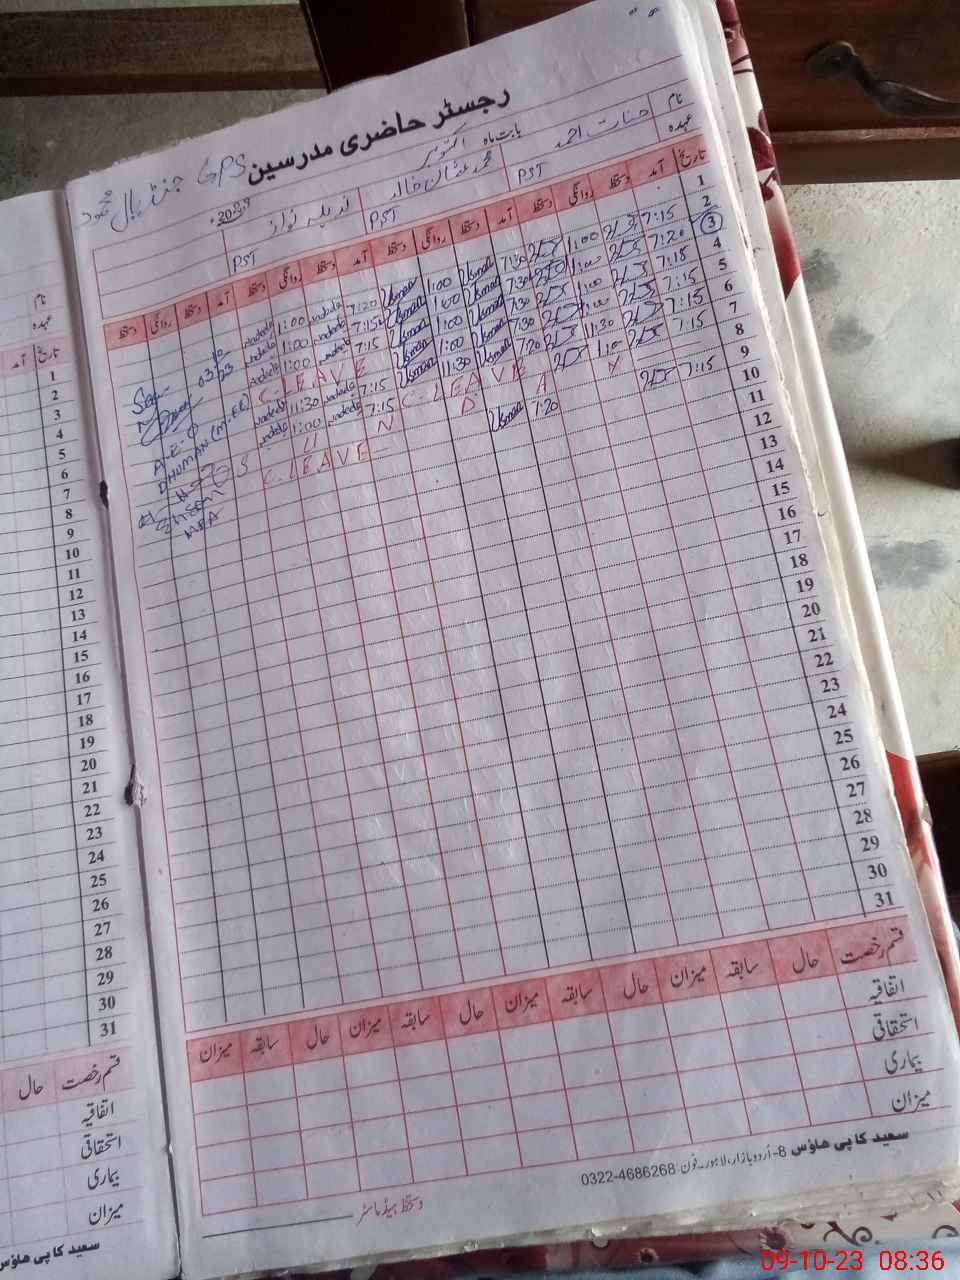 رجسٹر حاضری مدرسین GPS جنڈیالی محمود
بابت ماہ اکتوبر 2023
نام حسنات احمد محمد عثمان خالد نواز
عہدہ PST PST PST
تاریخ آمد دستخط روانگی دستخط آمد دستخط روانگی دستخط آمد دستخط روانگی دستخط آمد دستخط روانگی دستخط
1
2 7:15 1:00 7:30 Usman 1:00 Usman 7:20 1:00
3 7:20 1:00 7:30 Usman 1:00 Usman 7:15 1:00
4 7:18 1:00 7:30 Usman 1:00 Usman 7:15 1:00
5 7:15 1:00 7:30 Usman 1:00 Usman C. LEAVE
6 7:15 11:30 7:20 Usman 11:30 Usman 7:15 11:30
7 7:15 1:00 C. LEAVE 7:15 1:00
8 S U N D A Y
9 7:15 7:20 Usman C. LEAVE
10
11
12
13
14
15
16
17
18
19
20
21
22
23
24
25
26
27
28
29
30
31
A.E.O
DHUMAN (M.EE)
قسم رخصت حال سابقہ میزان حال سابقہ میزان حال سابقہ میزان حال سابقہ میزان
اتفاقیہ
استحقاقی
بیماری
میزان
سعید کاپی ہاؤس 8-اُردو بازار، لاہور۔ فون: 0322-4686268
دستخط ہیڈماسٹر
نام
عہدہ
تاریخ آمد
1
2
3
4
5
6
7
8
9
10
11
12
13
14
15
16
17
18
19
20
21
22
23
24
25
26
27
28
29
30
31
قسم رخصت حال
اتفاقیہ
استحقاقی
بیماری
میزان
سعید کاپی ہاؤس
09-10-23 08:36